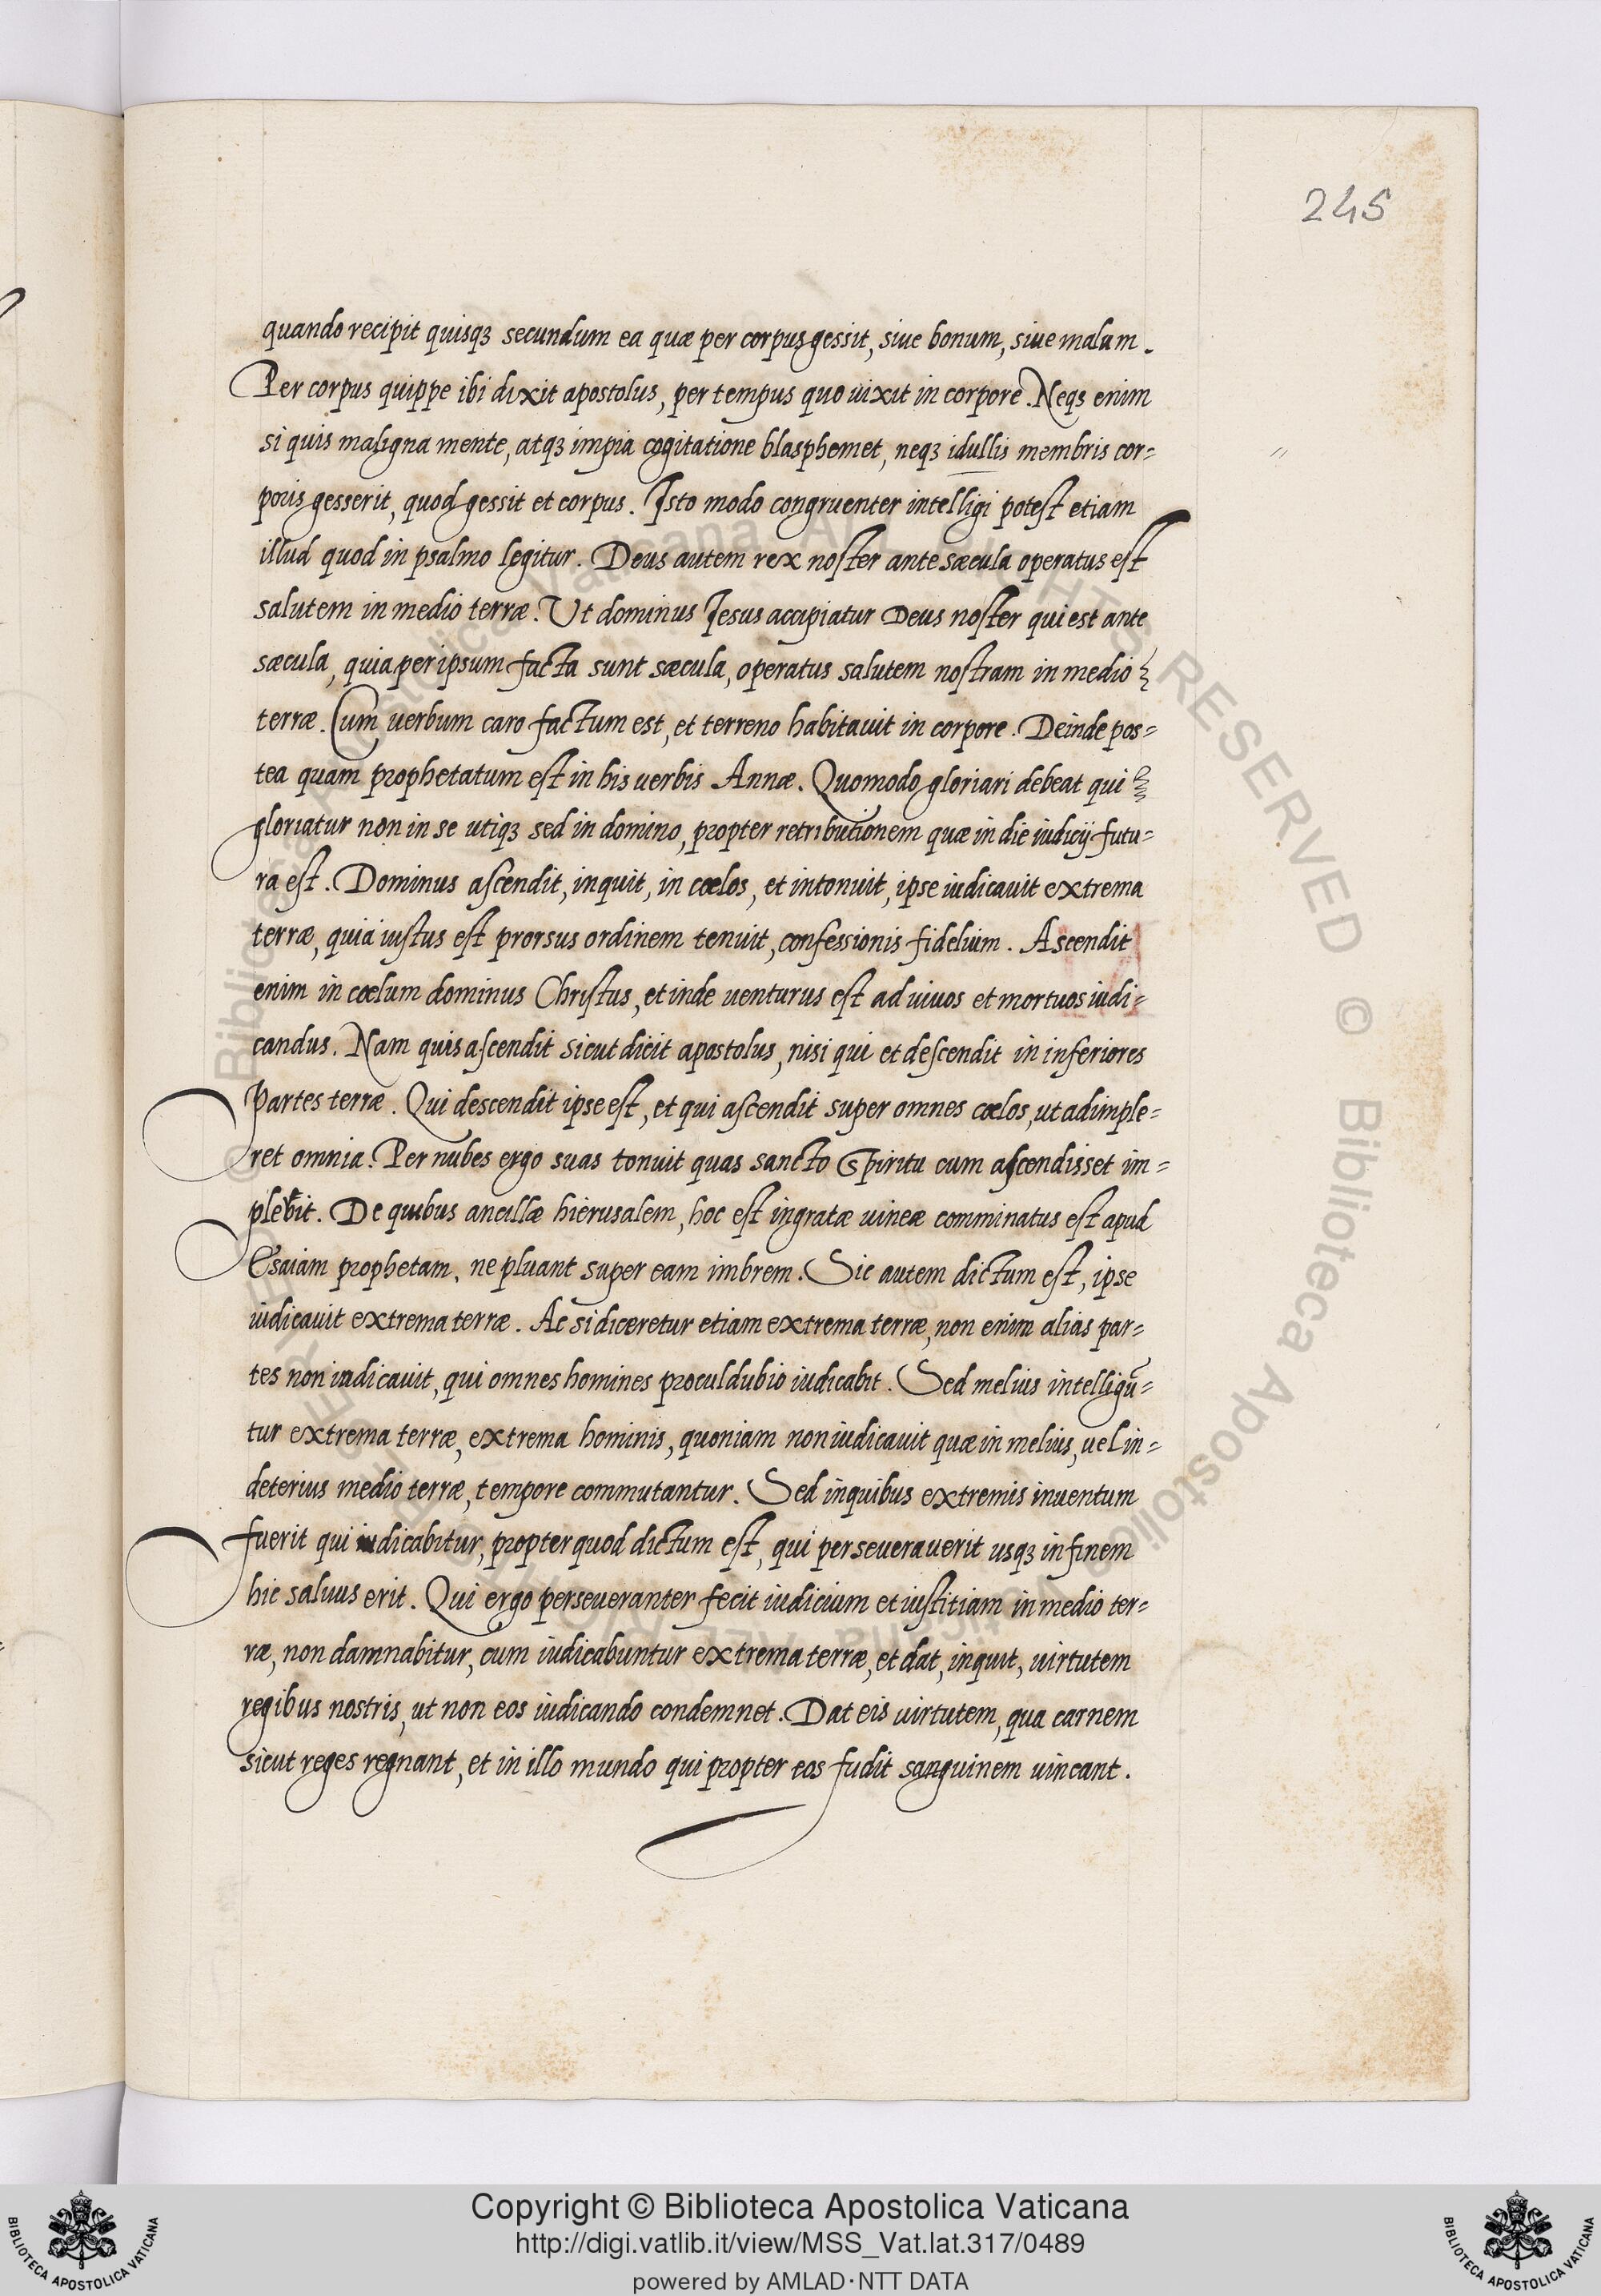 245
quando recipit quisqꝫ secundum ea quæ per corpus gessit, siue bonum, siue malum.
Per corpus quippe ibi dixit apostolus, per tempus quo uixit in corpore. Neqꝫ enim
si quis maligna mente, atqꝫ impia cogitatione blasphemet, neqꝫ idullis membris cor=
poris gesserit, quod gessit et corpus. Isto modo congruenter intelligi potest etiam
illud quod in psalmo legitur. Deus autem rex noster ante sæcula operatus est
salutem in medio terræ. Ut dominus Jesus accipiatur Deus noster qui est ante
sæcula, quia per ipsum facta sunt sæcula, operatus salutem nostram in medio
terræ. Cum uerbum caro factum est, et terreno habitauit in corpore. Deinde pos=
tea quam prophetatum est in his uerbis Annæ. Quomodo gloriari debeat qui
gloriatur non in se utiqꝫ sed in domino, propter retributionem quæ in die iudicij futu=
ra est. Dominus ascendit, inquit, in cœlos, et intonuit, ipse iudicauit extrema
terræ, quia iustus est prorsus ordinem tenuit, confessionis fidelium. Ascendit
enim in cœlum dominus Christus, et inde uenturus est ad uiuos et mortuos iudi=
candus. Nam quis ascendit sicut dicit apostolus, nisi qui et descendit in inferiores
Partes terræ. Qui descendit ipse est, et qui ascendit super omnes cœlos, ut adimple=
ret omnia. Per nubes ergo suas tonuit quas sancto Spiritu cum ascendisset im=
plebit. De quibus ancillæ hierusalem, hoc est ingratæ uineæ comminatus est apud
Esaiam prophetam, ne pluant super eam imbrem. Sic autem dictum est, ipse
iudicauit extrema terræ. Ac si diceretur etiam extrema terræ, non enim alias par=
tes non iudicauit, qui omnes homines proculdubio iudicabit. Sed melius intelligū=
tur extrema terræ, extrema hominis, quoniam non iudicauit quæ in melius, uel in=
deterius medio terræ, tempore commutantur. Sed inquibus extremis inuentum
fuerit qui iudicabitur, propter quod dictum est, qui perseuerauerit usqꝫ in finem
hic saluus erit. Qui ergo perseueranter fecit iudicium et iustitiam in medio ter=
ræ, non damnabitur, cum iudicabuntur extrema terræ, et dat, inquit, uirtutem
regibus nostris, ut non eos iudicando condemnet. Dat eis uirtutem, qua carnem
sicut reges regnant, et in illo mundo qui propter eos fudit sanguinem uincant.
© Biblioteca Apostolica Vaticana ALL RIGHTS RESERVED © Biblioteca Apostolica Vaticana ALL RIGHTS RESERVED
Copyright © Biblioteca Apostolica Vaticana
http://digi.vatlib.it/view/MSS_Vat.lat.317/0489
powered by AMLAD·NTT DATA
BIBLIOTECA APOSTOLICA VATICANA
BIBLIOTECA APOSTOLICA VATICANA